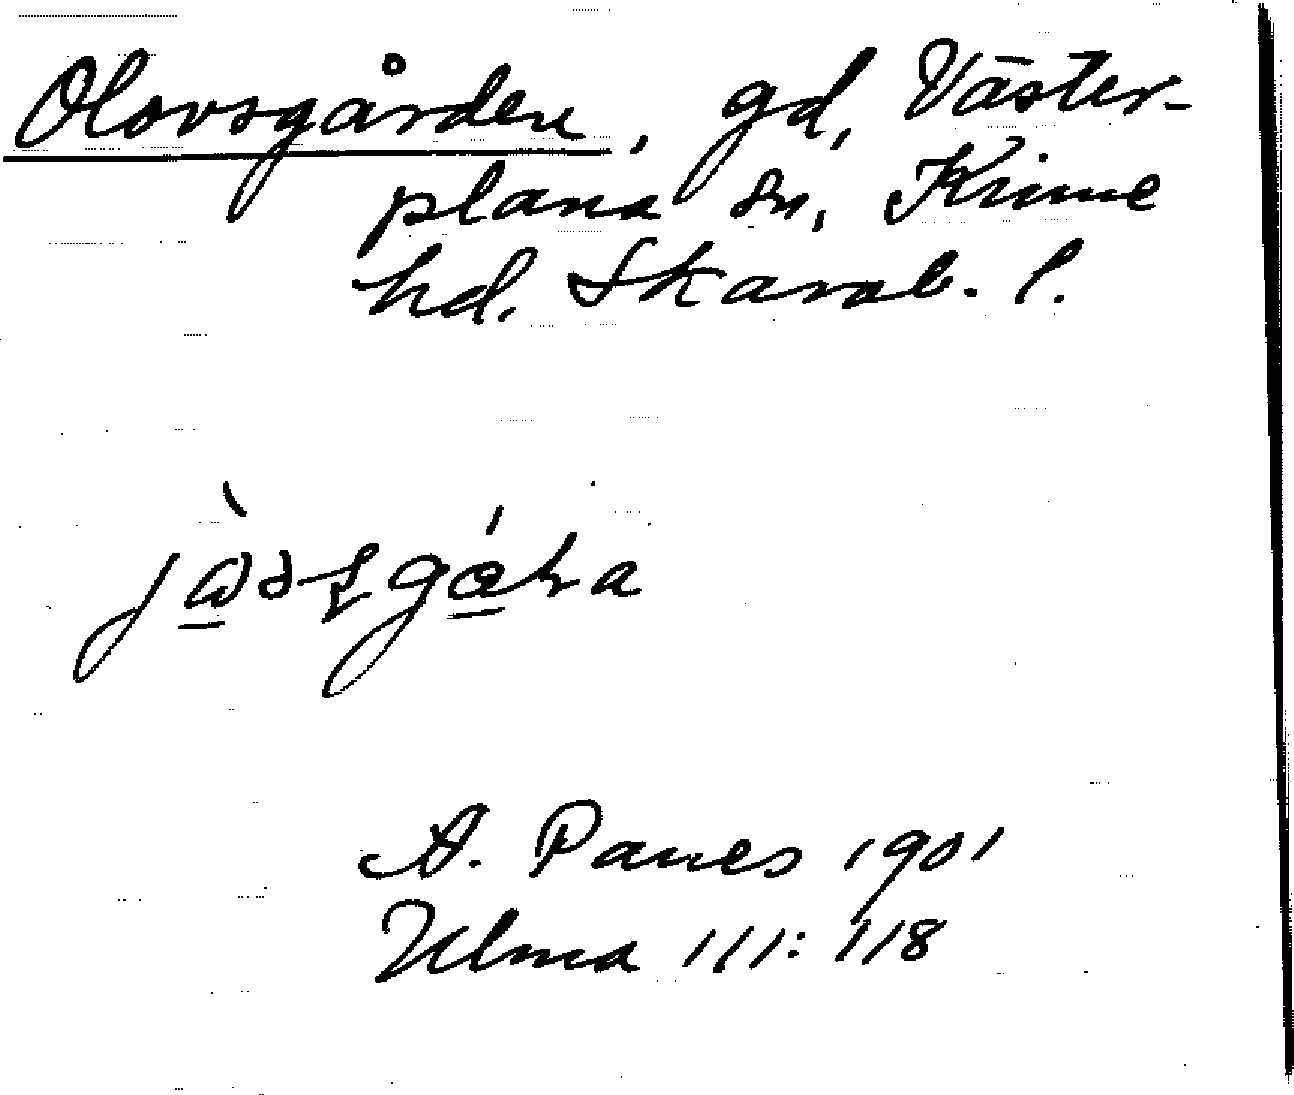 Olovsgården, gd, Väster-
plana sn, Kinne
hd. Skarab. l.
A. Panes 1901
Ulma 111: 118